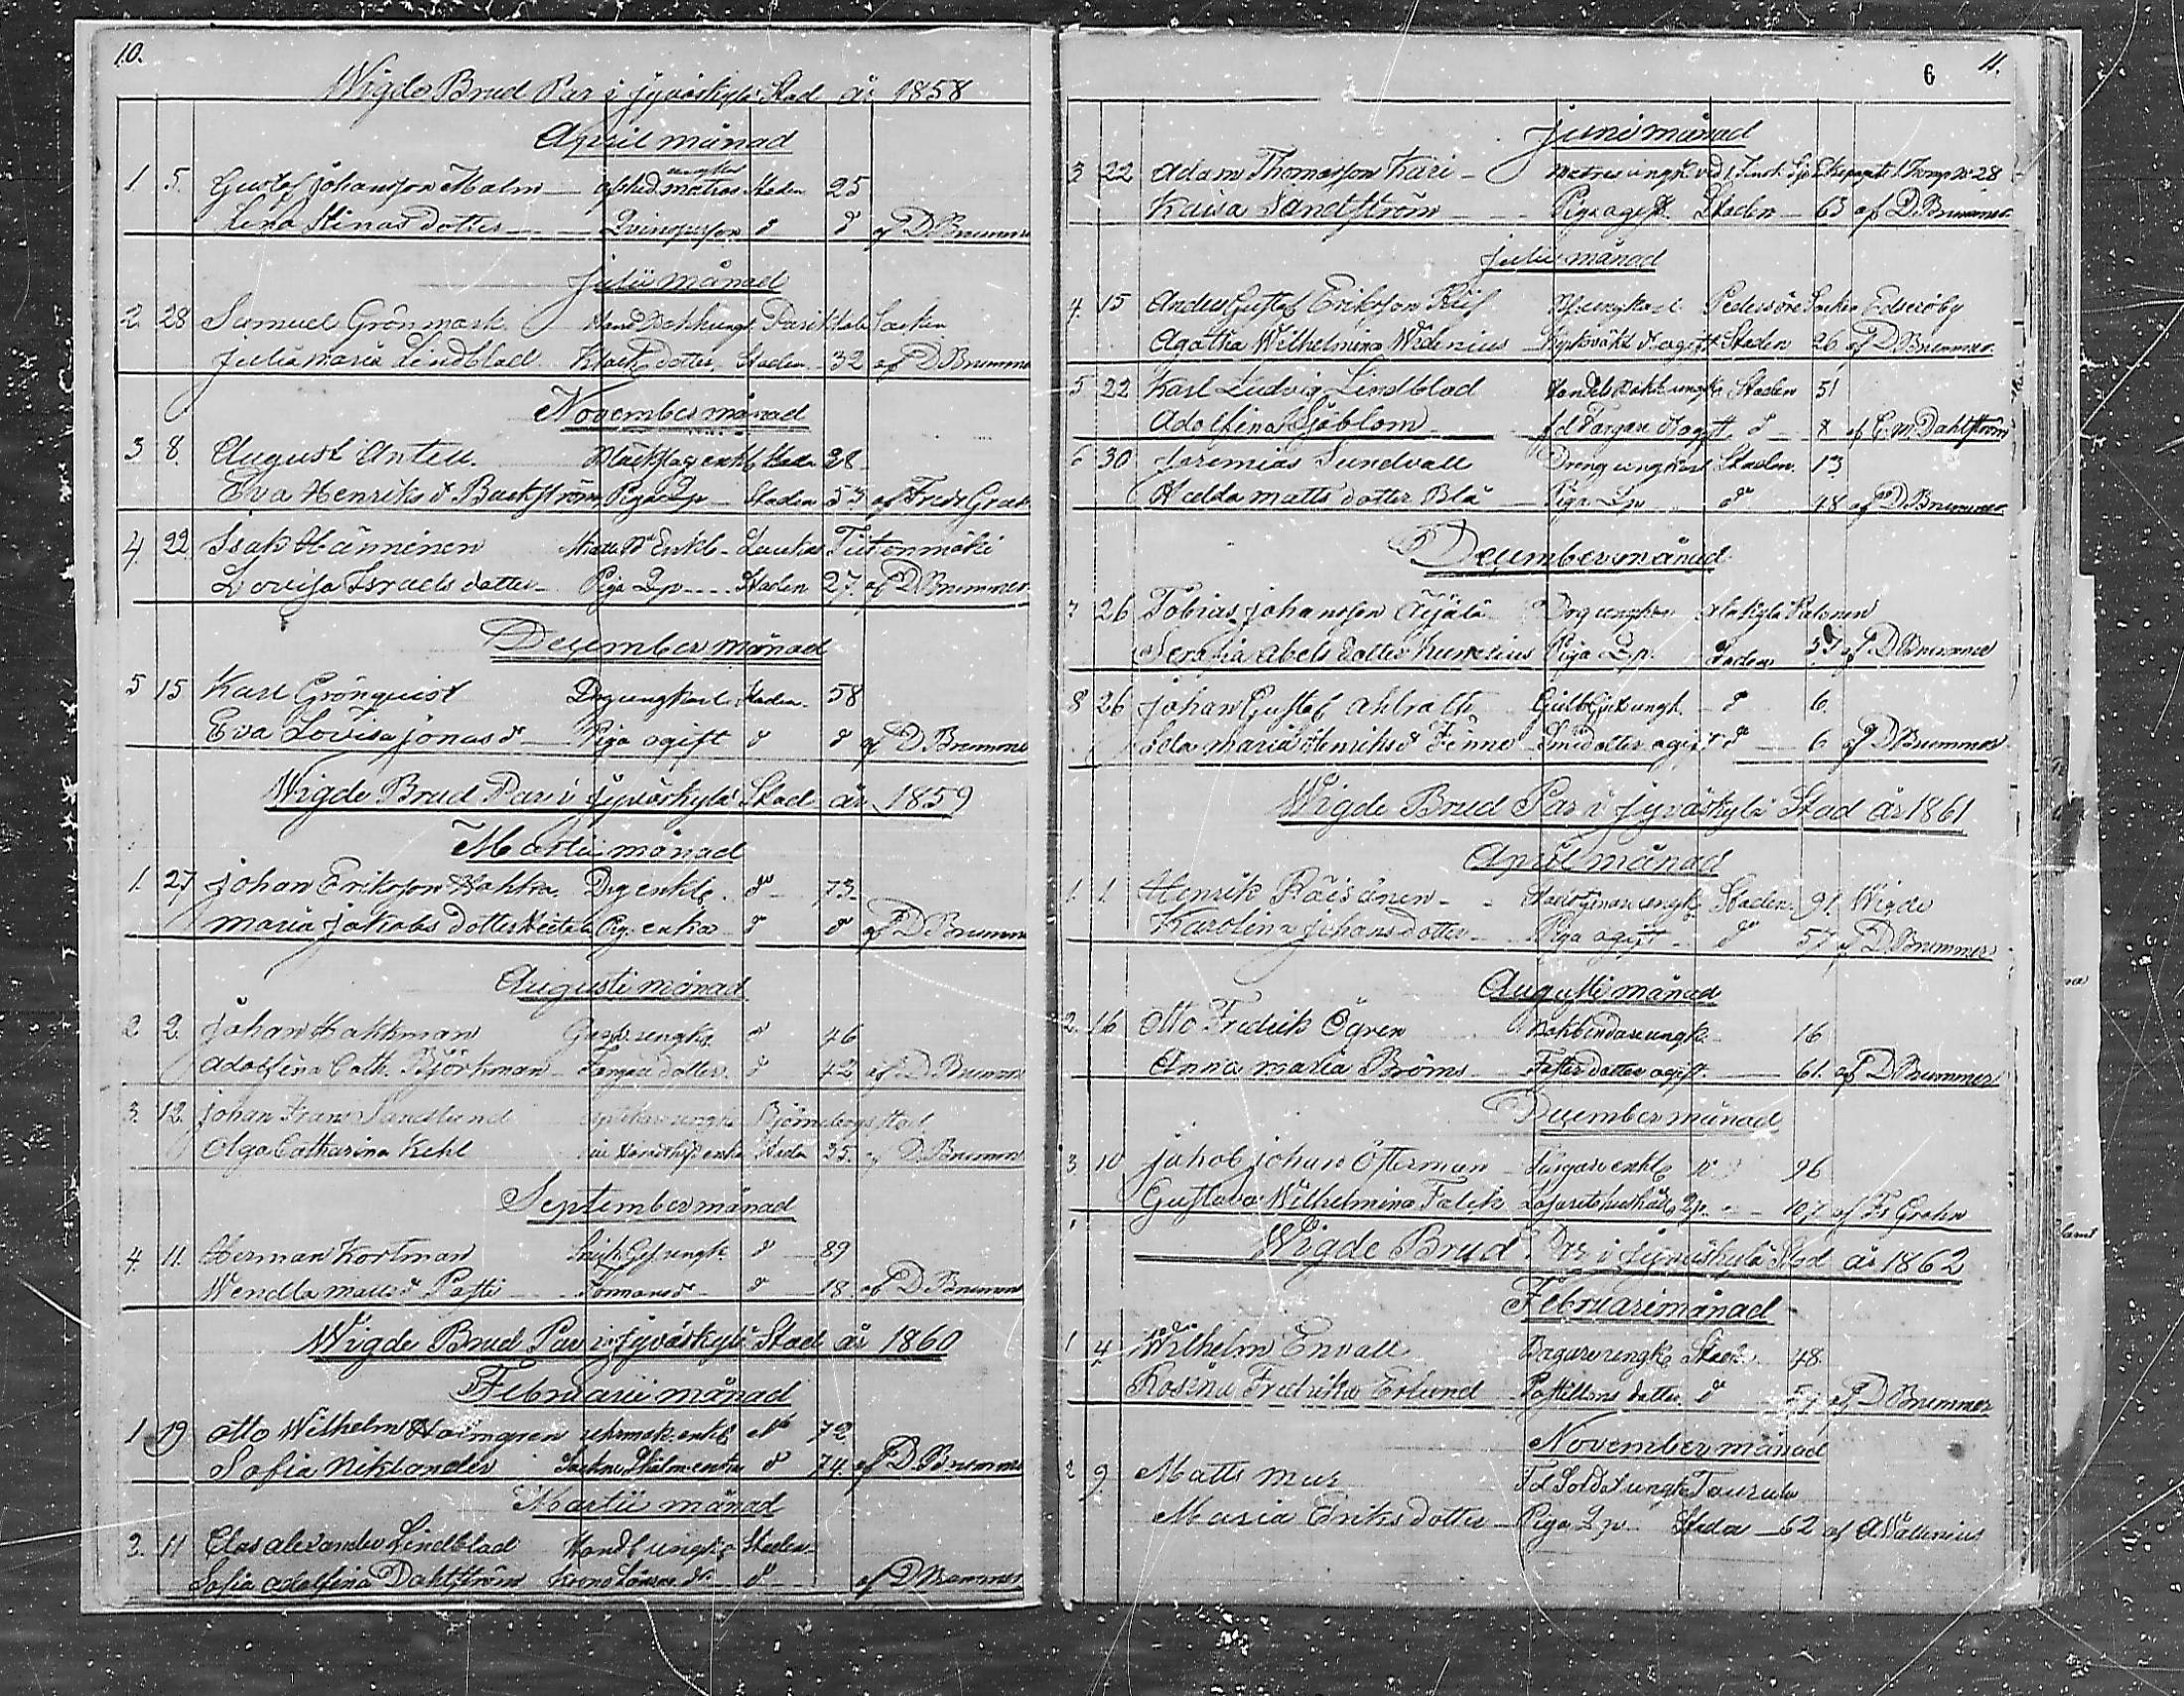 10.
Wigde Brud Par i Jyväskylä Stad år 1858
April månad
1 5. Gustaf Johansson Malm afsked. matros Staden 25
Lena Stinas dotter Qvinsperson d d af D Brummer
Julii månad
2. 28 Samuel Grönmark Parikkala Socken
Julia Maria Lindblad dotter Staden 32 af D Brummer
November månad
3 8. August Anteu. enkl Staden 28
Eva Henriks d Backström Piga Qp Staden 53 af Fredr Grahn
4. 22 Isak Hänninen Enkl Laukas
Lovisa Israels dotter Piga Qp Staden 27. af D Brummer
December månad
5 15 Karl Grönquist Drg ungkarl Staden 58
Eva Lovisa Jonas d Piga ogift d d af D Brummer
Wigde Brud Par i Jyväskylä Stad år 1859
Martii månad
1. 27 Johan Eriksson Hohka Drg enkl. do 73
Maria Jakobs dotter Pig. enka d d af D Brummer
Augusti månad
2 2. Johan Hakkman ungk. d 46
Adolfina Cath. Björkman Färgare dotter d 42 af D. Brummer
3. 12. Johan Frans Sandlund ungk Björneborgs stad
Olga Catharina Kehl enka Staden 35. af D Brummer
September månad
4. 11. Herman Kortman Gesungk. d 89
Wendla Matts d Pasti d 18. af D Brummer
Wigde Brud Par i Jyväskylä Stad år 1860
Februarii månad
1 19 Otto Wilhelm Holmgren urhmak. enkl 72.
Sofia Niklander enka d 74. af D. Brummer
Martii månad
2. 11 Clas Alexander Lindblad Handl ungk Staden
Sofia Adolfina Dahlström Krono Länsm. dr d af D Brummer
6 11.
Juni månad
3 22 Adam Thomasson Kari Matros ungk vid 1. Finsk. Sjö Ekipaget 1 Komp No 28
Kaisa Sandström Piga ogift Staden 63 af D. Brummer
Julii månad
4. 15 Anders Gustaf Eriksson ungkarl Pedersöre Socken
Agatha Wilhelmina Widenius ogift Staden 26 af D Brummer.
5 22 Karl Ludvig Lindblad Handels Bokh. ungk. Staden 51
Adolfina Sjöblom f d Färgare d ogift d af E. W. Dahlström
6 30 Jeremias Sundvall Dreng ungkarl Staden. 13
Hedda Matts dotter Blå Piga Qp do 48 af D Brummer
December månad
7 26 Tobias Johansson Äijälä Drg ungkar
Serafia Abels dotter Kumenius Piga Qp. Staden 57 af D Brummer
8 26 Johan Gustaf Ahlroth ungk. d 6.
Ida Maria Henriks d Finne Smed dotter ogift d 6 af D Brummer
Wigde Brud Par i Jyväskylä Stad år 1861
April månad
1. 1. Henrik Räisänen ungk Staden 91. Wigde
Karolina Johans dotter Piga ogift do 57 af D. Brummer
Augusti månad
2. 16 Otto Fredrik Ögren Bokbindare ungk. 16
Anna Maria Bröms dotter ogift. 61. af D Brummer
December månad
3 10 Jakob Johan Österman Färgare enkl 96
Gustava Wilhelmina Falck Qp. 107 af Fr Grahn
Wigde Brud Par i Jyväskylä Stad år 1862
Februari månad
1 4 Wilhelm Envall Bagare ungk Staden 48.
Rosina Fredrika Erlund Postillons dotter d af D Brummer
November månad
2 9 Matts Mur Fd Soldat ungk
Maria Eriks dotter Piga Qp Staden 62 af A Wallenius